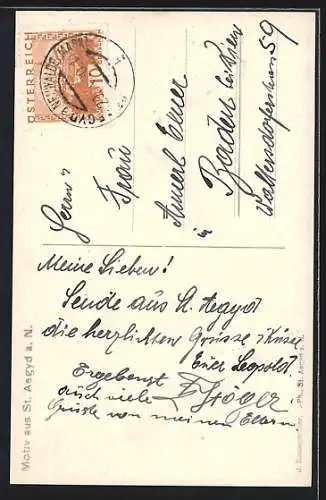 ÖSTERREICH
10
ST. AEGYD A. NEUWALDE
Herrn u
Frau
Amerl Exner
in Baden bei Wien
Waltersdorferstrasse 59
Meine Lieben!
Sende aus St. Aegyd
die herzlichsten Grüsse u Küsse
Euer Leopold.
Ergebenst
auch viele
Grüsse von meinen Eltern
Motiv aus St. Aegyd a. N.
Ph. St. Aegyd a. N.